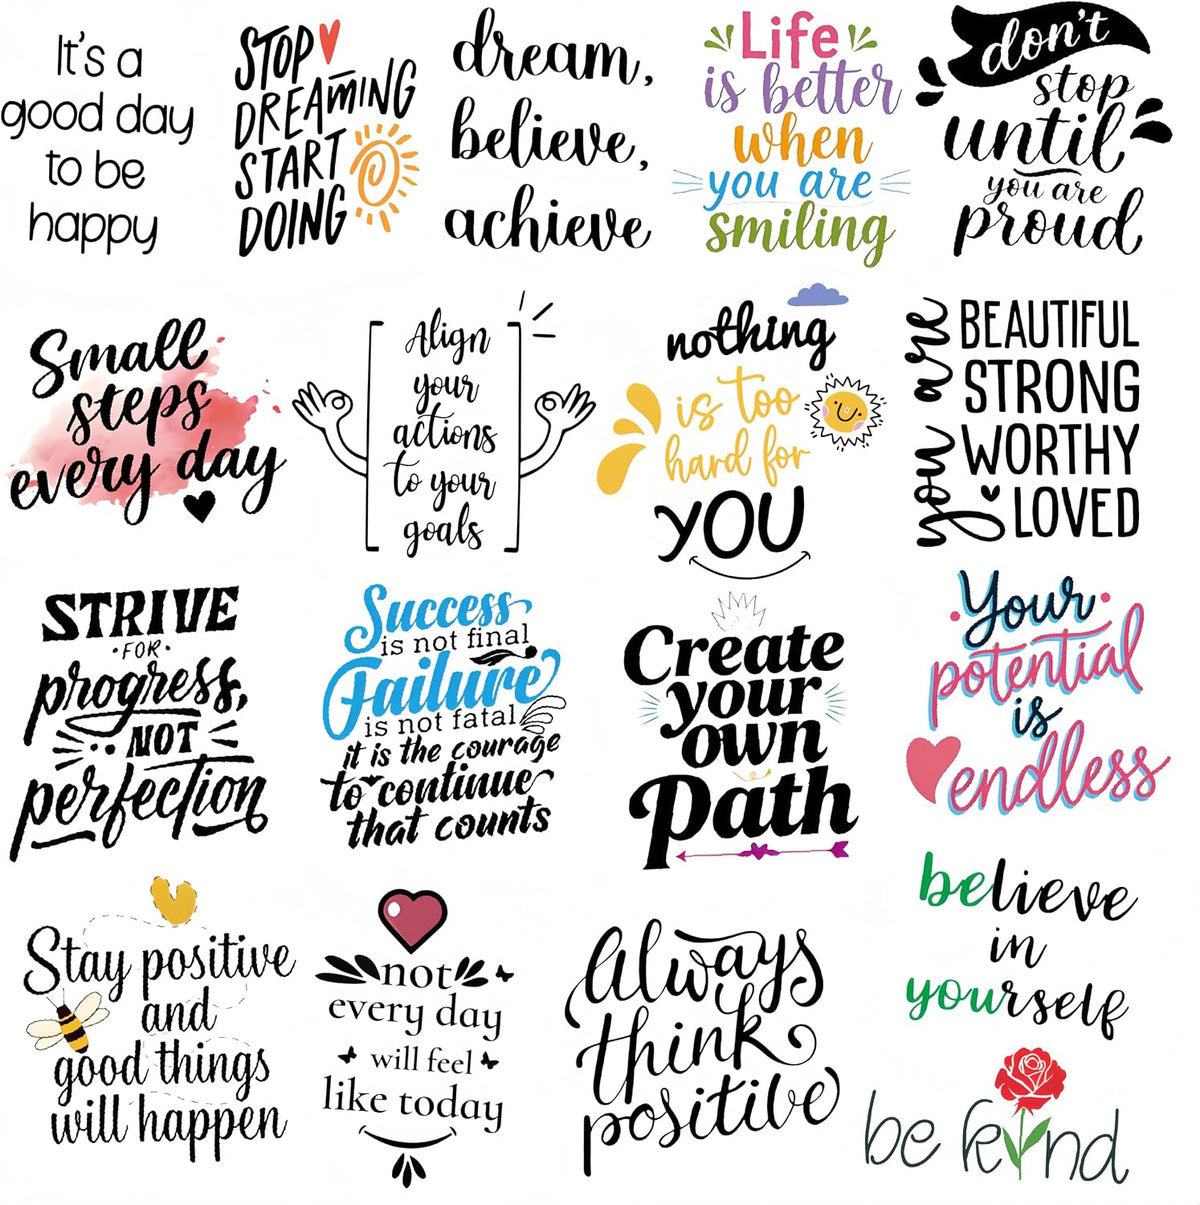 It's a
good day
to be
happy
STOP
DREAMING
START
DOING
dream,
believe,
achieve
Life
is better
when
you are
smiling
don't
stop
until
you are
proud
Small
steps
every day
Align
your
actions
to your
goals
nothing
is too
hard for
YOU
you are
BEAUTIFUL
STRONG
WORTHY
LOVED
STRIVE
·FOR·
progress,
NOT
perfection
Success
is not final
Failure
is not fatal
it is the courage
to continue
that counts
Create
your
own
Path
Your
potential
is
endless
Stay positive
and
good things
will happen
not
every day
will feel
like today
Always
think
positive
believe
in
yourself
be kind